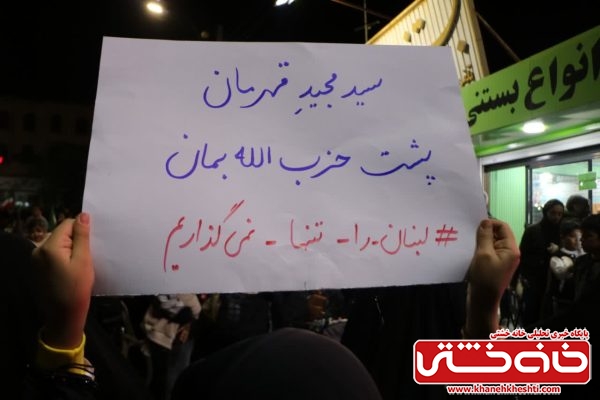 سید مجیدِ قهرمان
پشت حزب الله بمان
#لبنان_را_تنها_نمی‌گذاریم
انواع بستنی
پایگاه خبری تحلیلی خانه خشتی
خانه خشتی
www.khanehkheshti.com